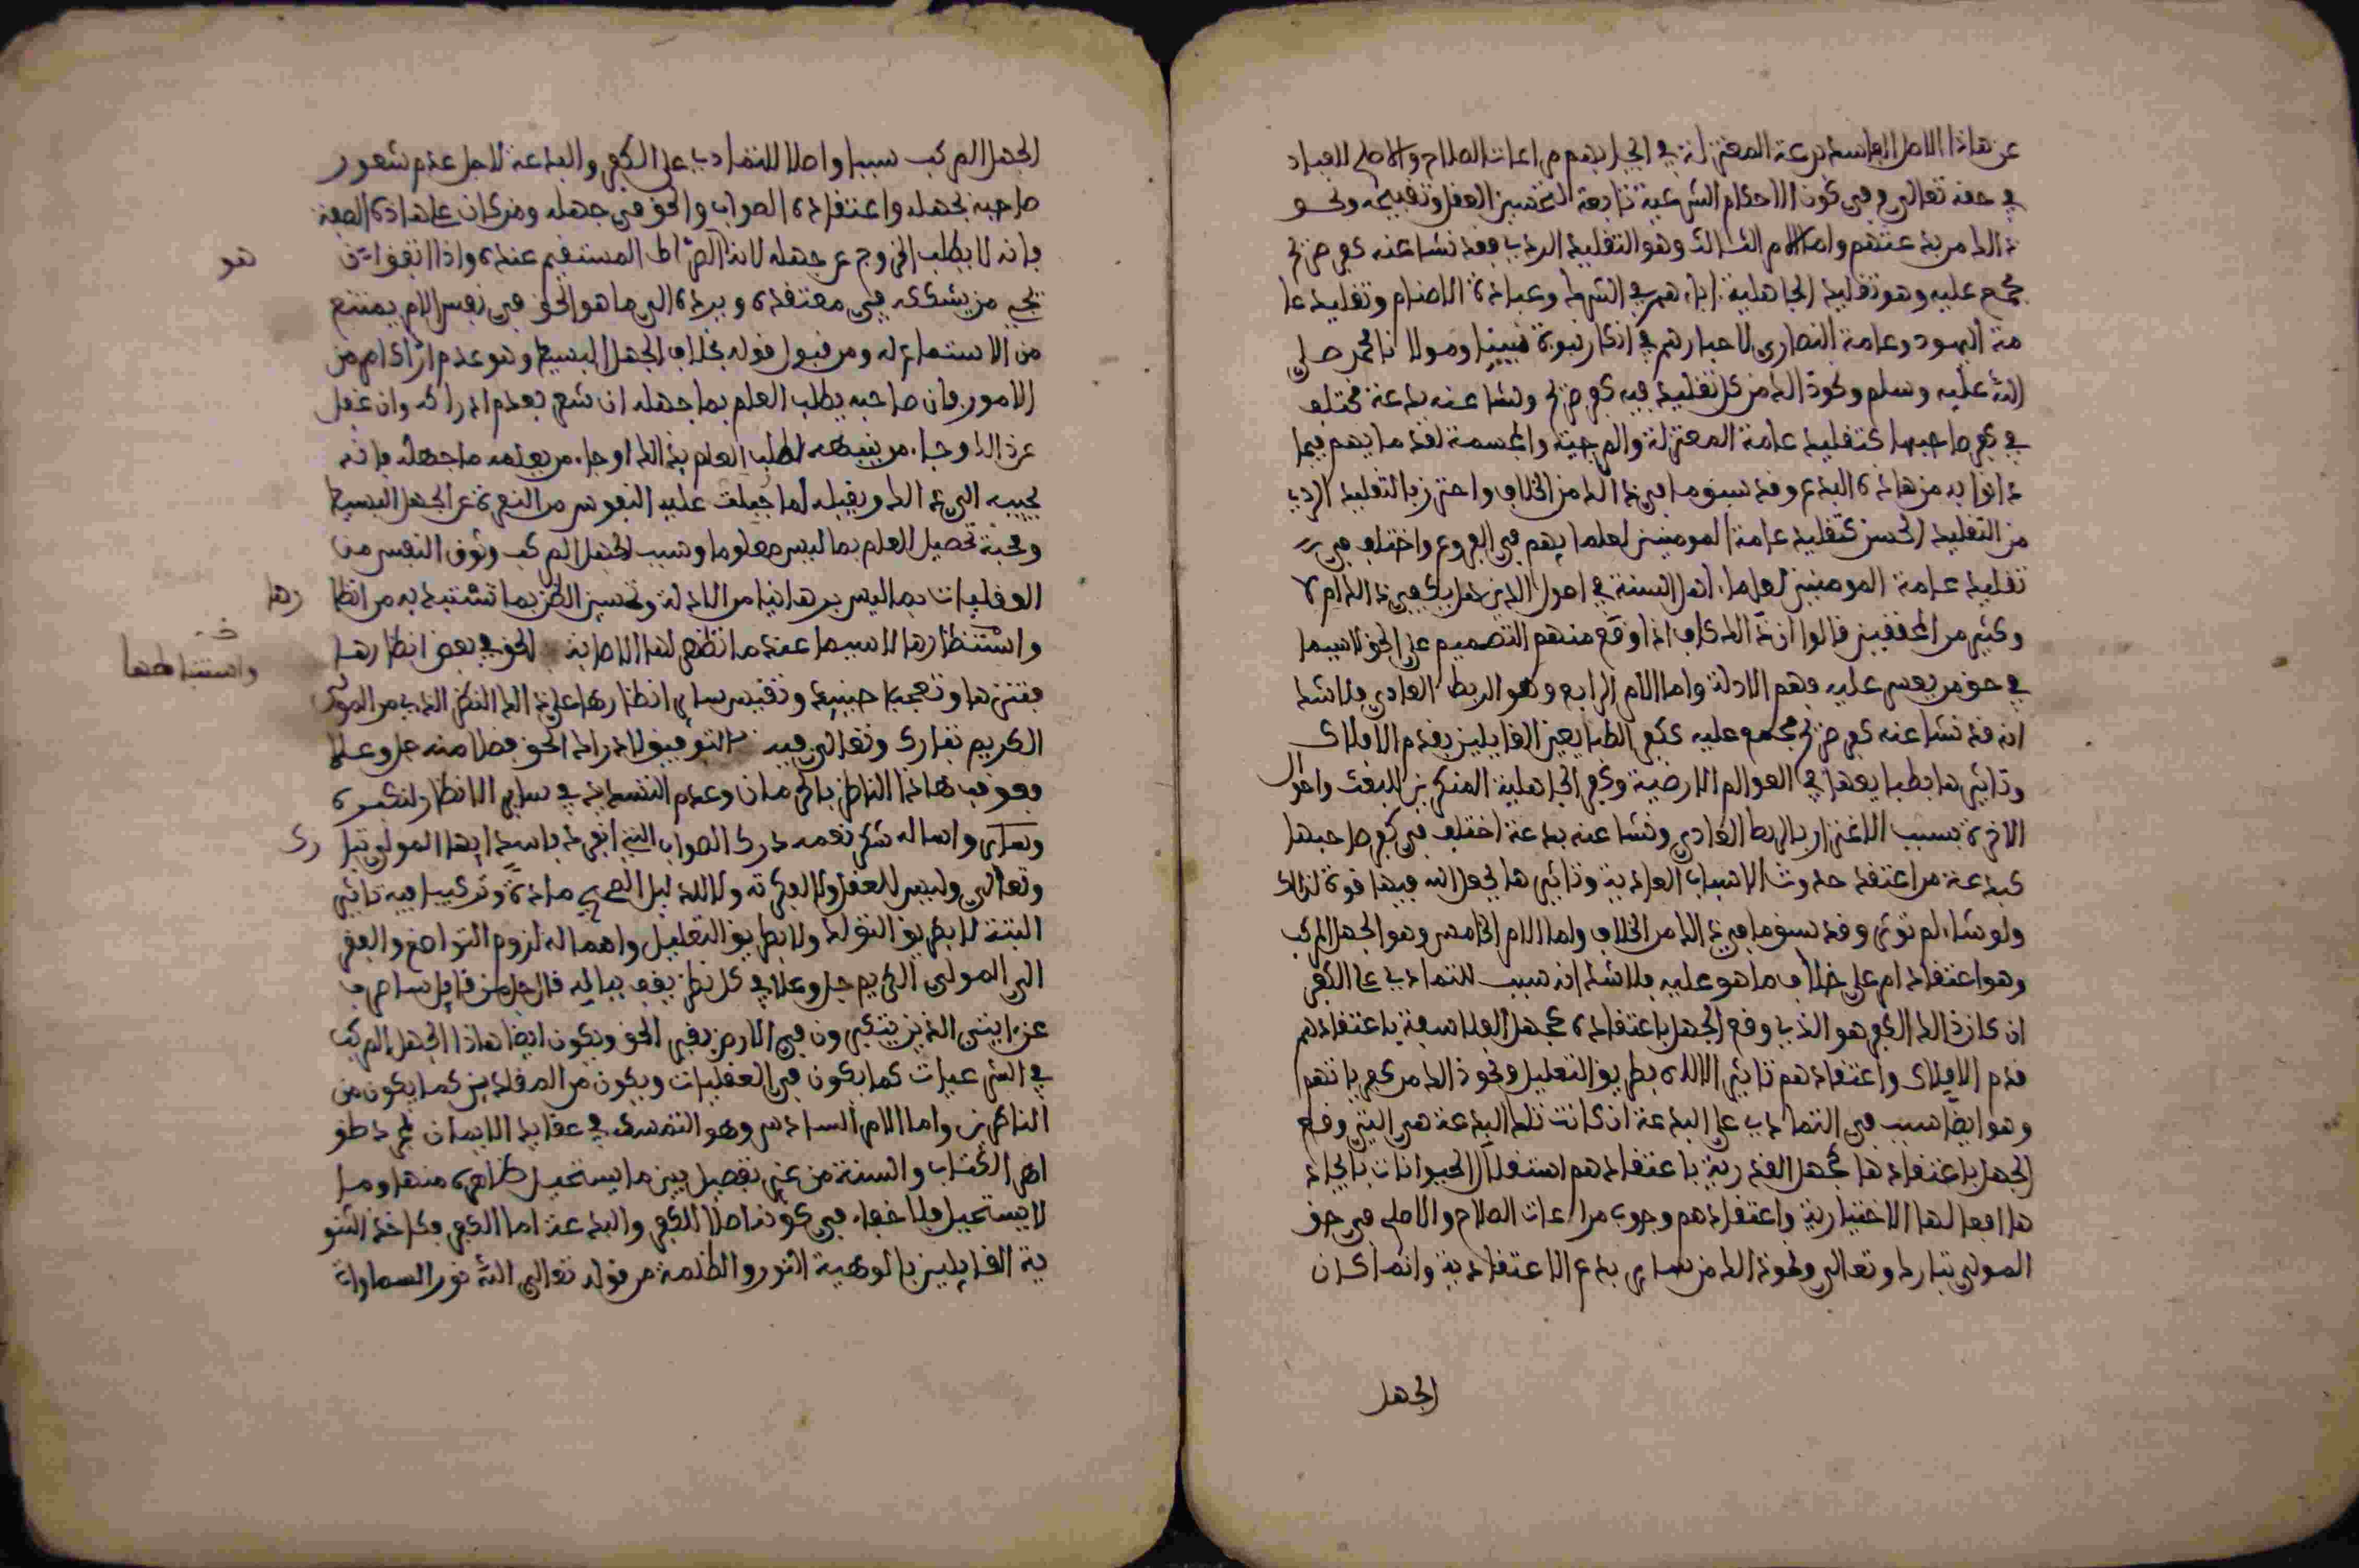 عن هاذا الاصل الفاسد بدعة المعتزلة في ايجابهم مراعات الصلاح والاصلح للعباد
في حقه تعالى وفي كون الاحكام الشرعية تابعة لتحسين العقل وتقبيحه ونحو
ذالك من بدعتهم واما الامر الثالث وهو التقليد الردي فقد نشا عنه كفر صريح
مجمع عليه وهو تقليد الجاهلية اباءهم في الشرك وعبادة الاصنام وتقليد عا
مة اليهود وعامة النصارى لاحبارهم في انكار نبوة نبينا ومولانا محمد صلى
الله عليه وسلم ونحو ذالك من كل تقليد فيه كفر صريح ونشا عنه بدعة مختلف
في كفر صاحبها كتقليد عامة المعتزلة والمرجية والمجسمة لقدمايهم فيما
دانوا به من هاذه البدع وقد سبق ما في ذالك من الخلاف واحترز بالتقليد الردي
من التقليد الحسن كتقليد عامة المومنين لعلمايهم في الفروع واختلف في
تقليد عامة المومنين لعلماء اهل السنة في اصول الدين هل يكفي ذالك ام لا
وكثير من المحققين قالوا ان ذالك كاف اذا وقع منهم التصميم على الحق لاسيما
في حق من يعسر عليه فهم الادلة واما الامر الرابع وهو الربط العادي فلا شك
انه قد نشا عنه كفر صريح مجمع عليه ككفر الطبايعين القايلين بقدم الافلاك
وتاثيرها بطبايعها في العوالم الارضية وكفر الجاهلية المنكرين للبعث واحوال
الاخرة بسبب الاغترار بالربط العادي ونشا عنه بدعة اختلف في كفر صاحبها
كبدعة من اعتقد حدوث الاسباب العادية وتاثيرها بجعل الله فيها قوة لذالك
ولو شاء لم توثر وقد سبق ما في ذالك من الخلاف واما الامر الخامس وهو الجهل المركب
وهو اعتقاد امر على خلاف ما هو عليه فلا شك انه سبب للتمادي على الكفر
ان كان ذالك الكفر هو الذي وقع الجهل باعتقاده كجهل الفلاسفة باعتقادهم
قدم الافلاك واعتقادهم تاثير الالاه بطريق التعليل ونحو ذالك من كفرياتهم
وهو ايضا سبب في التمادي على البدعة ان كانت تلك البدعة هي التي وقع
الجهل باعتقادها كجهل القدرية باعتقادهم استقلال الحيوانات بايجاد
ها افعالها الاختيارية واعتقادهم وجوب مراعات الصلاح والاصلح في حق
المولى تبارك وتعالى ونحو ذالك من ساير بدع الاعتقادية وانما كان
الجهل
الجهل المركب سببا واصلا للتمادي على الكفر والبدعة لاجل عدم شعور
صاحبه بجهله واعتقاده الصواب والحق في جهله ومن كان على هاذه الصفة
فانه لا يطلب الخروج عن جهله لانه الصراط المستقيم عنده واذا اتفق ان
هو
يجيء من يشككه في معتقده ويرده الى ما هو الحق في نفس الامر يمتنع
من الاستماع له ومن قبول قوله بخلاف الجهل البسيط وهو عدم ادراك امر من
الامور فان صاحبه يطلب العلم بما جهله ان شعر بعدم ادراكه وان غفل
عن ذالك وجاء من ينبهه لطلب العلم بذالك او جاء من يعلمه ما جهله فانه
يجيبه الى ذالك ويقبله لما جبلت عليه النفوس من النفرة عن الجهل البسيط
ومحبة تحصيل العلم بما ليس معلوما وسبب الجهل المركب وثوق النفس من
العقليات بما ليس برهانيا من الادلة وتحسين الظن بما تستبد به من انظا
رها
واستنظارها لاسيما عند ما تظهر لها الاصابة للحق في بعض انظارها
واستنباطها
فتزها وتعجب حينيذ وتقيس ساير انظارها على ذالك النظر الذي من المولى
الكريم تبارك وتعالى فيه بالتوفيق لادراك الحق فضلا منه جل وعلا
فعوقب هاذا الناظر بالحرمان وعدم التسديد في ساير الانظار لتكبره
شكر نعمة درك الصواب التي انفرد باسدايها المولى تبا
رك
وتعالى وليس للعقل ولا لفكرته ولا للدليل الصحيح مادة وتركيبا فيه تاثير
البتة لا بطريق التولد ولا بطريق التعليل واهماله لزوم التواضع والفقر
الى المولى الكريم جل وعلا في كل نظر يقف بباله قال جل من قايل ساصرف
عن اياتي الذين يتكبرون في الارض بغير الحق ويكون ايضا هاذا الجهل المركب
في الشرعيات كما يكون في العقليات ويكون من المقلدين كما يكون من
الناظرين واما الامر السادس وهو التمسك في عقايد الايمان بمجرد ظو
اهر الكتاب والسنة من غير تفصيل بين ما يستحيل ظاهره منها وما
لا يستحيل فلا خفاء في كونه اصلا للكفر والبدعة اما الكفر فكاخذ الثنو
ية القايلين بالوهية النور والظلمة من قوله تعالى الله نور السماوات